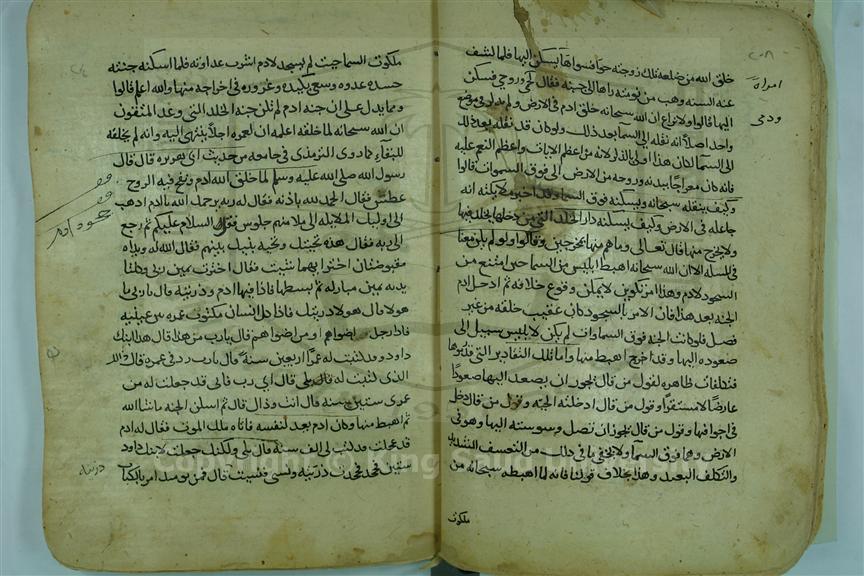 خلق الله من ضلعه تلك زوجته حوا فسواها يسكن اليها فلما كشف
عنه السنه وهب من نومته راها الى جنبه فقال لحمي وروحي فسكن
اليها قالوا ولا نزاع ان الله سبحانه خلق ادم في الارض ولم يذكر في موضع
واحد اصلا انه نقله الى السما بعد ذلك ولو كان قد نقله بعد ذلك
الى السما لكان هذا اولى بالذكر لانه من اعظم الايات واعظم النعم عليه
فانه كان معراجا ببدنه وروحه من الارض الى فوق السموات قالوا
وكيف ينقله سبحانه ويسكنه فوق السما وقد اخبر ملايكته انه
جاعله في الارض وكيف يسكنه دار الخلد التي من دخلها خلد فيها
ولا يخرج منها قال تعالى وما هم منها بمخرجين وقالوا ولو لم يكن معنا
في المسله الا ان الله سبحانه اهبط ابليس من السما حين امتنع من
السجود لادم وهذا امر تكوين لا يمكن وقوع خلافه ثم ادخل ادم
الجنه بعد هذا فان الامر بالسجود كان عقيب خلقه من غير
فصل فلو كانت الجنه فوق السماوات لم يكن لابليس سبيل الى
صعوده اليها وقد اخرج اهبط منها واما تلك التقادير التي قدرتموها
فتكلفات ظاهره كقول من قال يجوز ان يصعد اليها صعودا
عارضا لا مستقرا وقول من قال ادخلته الحيه وقول من قال دخل
في اجوافها وقول من قال يجوز ان تصل وسوسته اليها وهو في
الارض وهما فوق السما ولا يخفى ما في ذلك من التعسف الشديد
والتكلف البعيد وهذا بخلاف قولنا فانه لما اهبطه سبحانه من
ملكوت
امراه
ودمي
٢٠٨
ملكوت السما حيث لم يسجد لادم اشرب عداوته فلما اسكنه جنته
حسده عدوه وسعى بكيده وغروره في اخراجه منها والله اعلم قالوا
ومما يدل على ان جنه ادم لم تكن جنه الخلد التي وعد المتقون
ان الله سبحانه لما خلقه اعلمه ان لعمره اجلا ينتهي اليه وانه لم يخلقه
للبقاء كما روى الترمذي في جامعه من حديث ابي هريره قال قال
رسول الله صلى الله عليه وسلم لما خلق الله ادم ونفخ فيه الروح
عطس فقال الحمد لله باذنه فقال له ربه يرحمك الله يا ادم اذهب
الى اوليك الملايكه الى ملا منهم جلوس فقل السلام عليكم ثم رجع
الى ربه فقال هذه تحيتك وتحيه بنيك بينهم فقال الله له ويداه
مقبوضتان اختر ايهما شئت فقال اخترت يمين ربي وكلتا
يديه يمين مباركه ثم بسطها فاذا فيها ادم وذريته قال يا ربي ما
هولا قال هولا ذريتك فاذا كل انسان مكتوب عمره بين عينيه
فاذا رجل اضواهم او من اضواهم قال يا رب من هذا قال هذا ابنك
داود وقد كتبت له عمرا اربعين سنة قال يا رب زد في عمره قال ذلك
الذي كتبت له قال اي رب فاني قد جعلت له من
عمري ستين سنه قال انت وذاك قال ثم اسكن الجنه ما شا الله
ثم اهبط منها وكان ادم يعد لنفسه فاتاه ملك الموت فقال له ادم
قد عجلت قد كتب لي الف سنه قال بلى ولكنك جعلت لابنك داود
ستين فجحد فجحدت ذريته ونسي فنسيت قال فمن يومئذ امر بالكتاب
ذريته